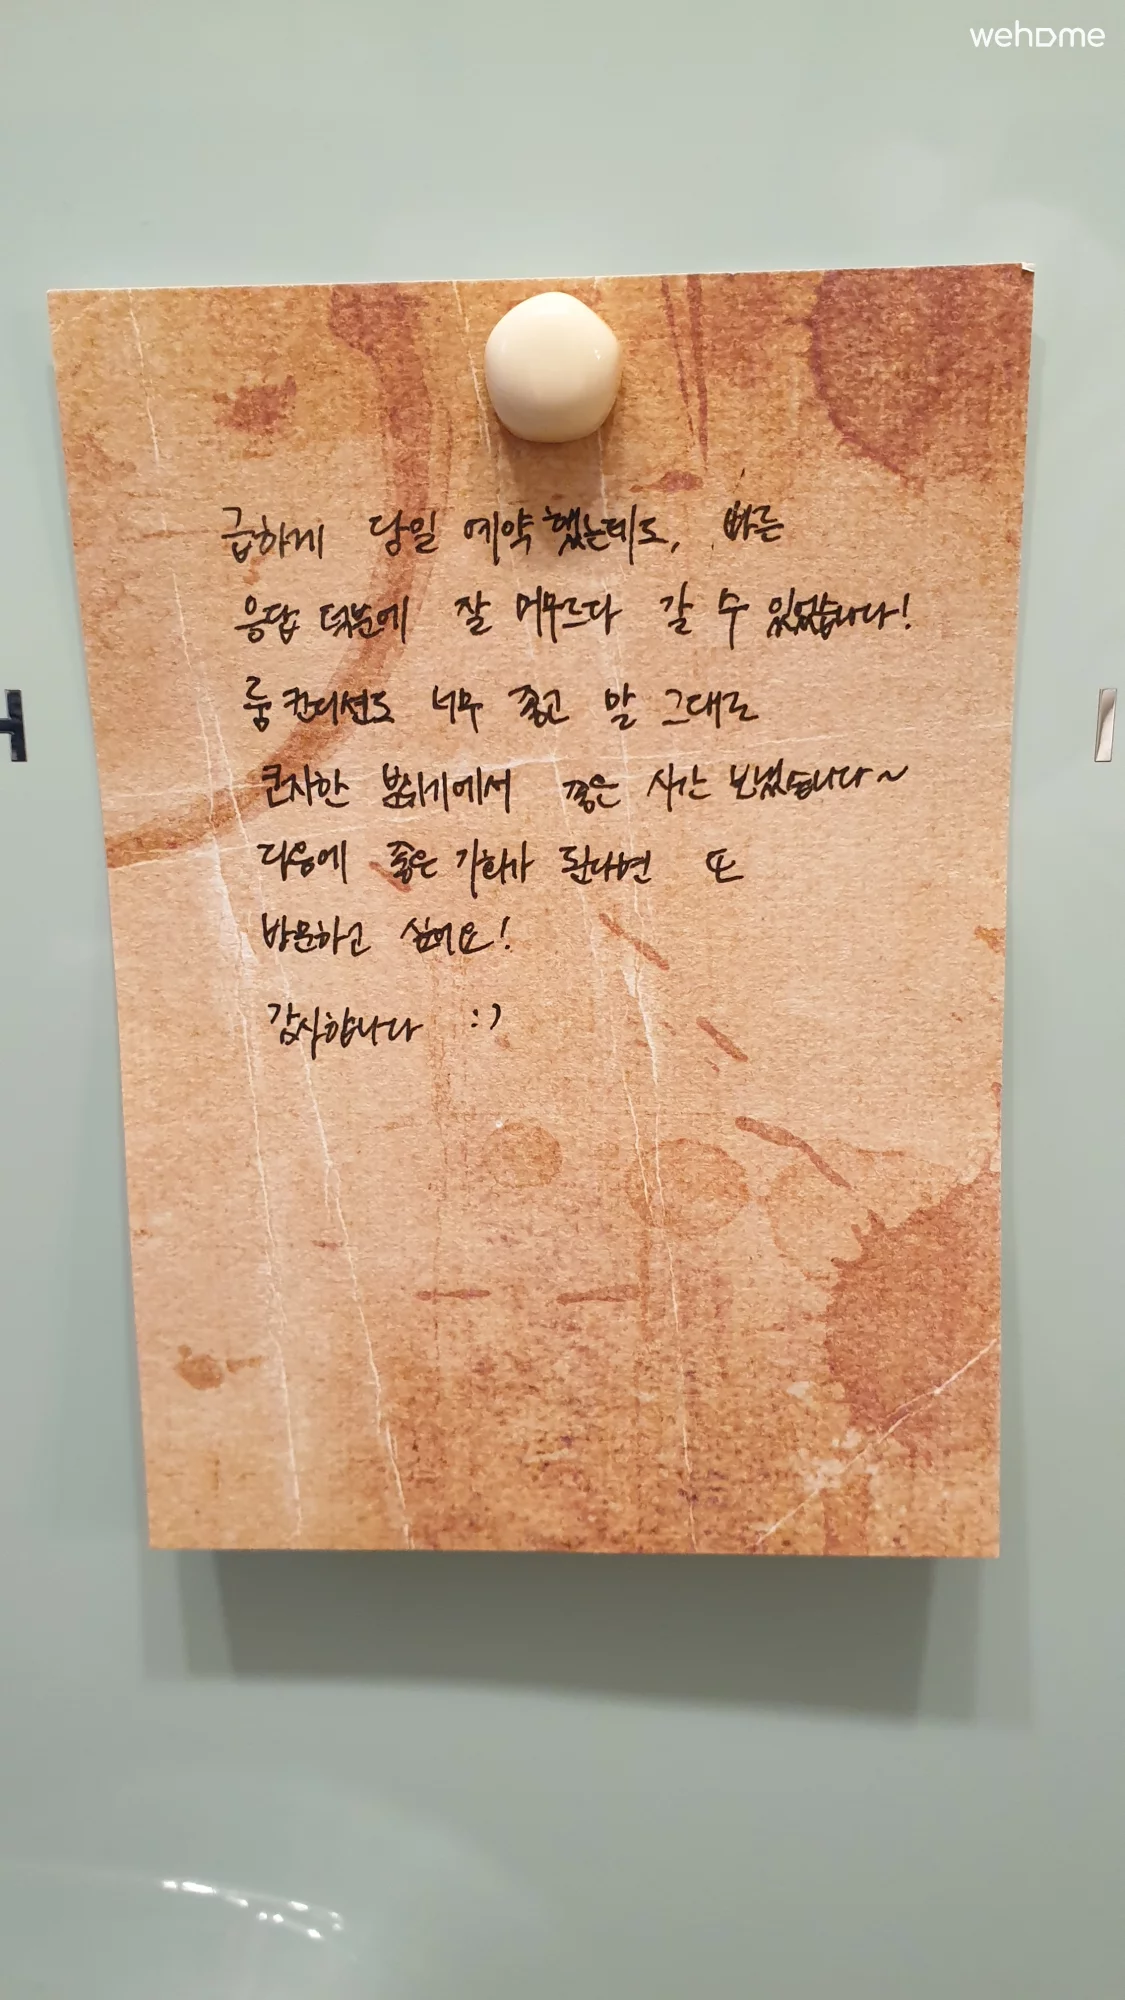 wehome
급하게 당일 예약했는데도, 빠른
응답 덕분에 잘 머무르다 갈 수 있었습니다!
룸 컨디션도 너무 좋고 말 그대로
분위기에서 좋은 시간 보냈습니다~
다음에 좋은 기회가 된다면 또
방문하고 싶어요!
감사합니다 :)